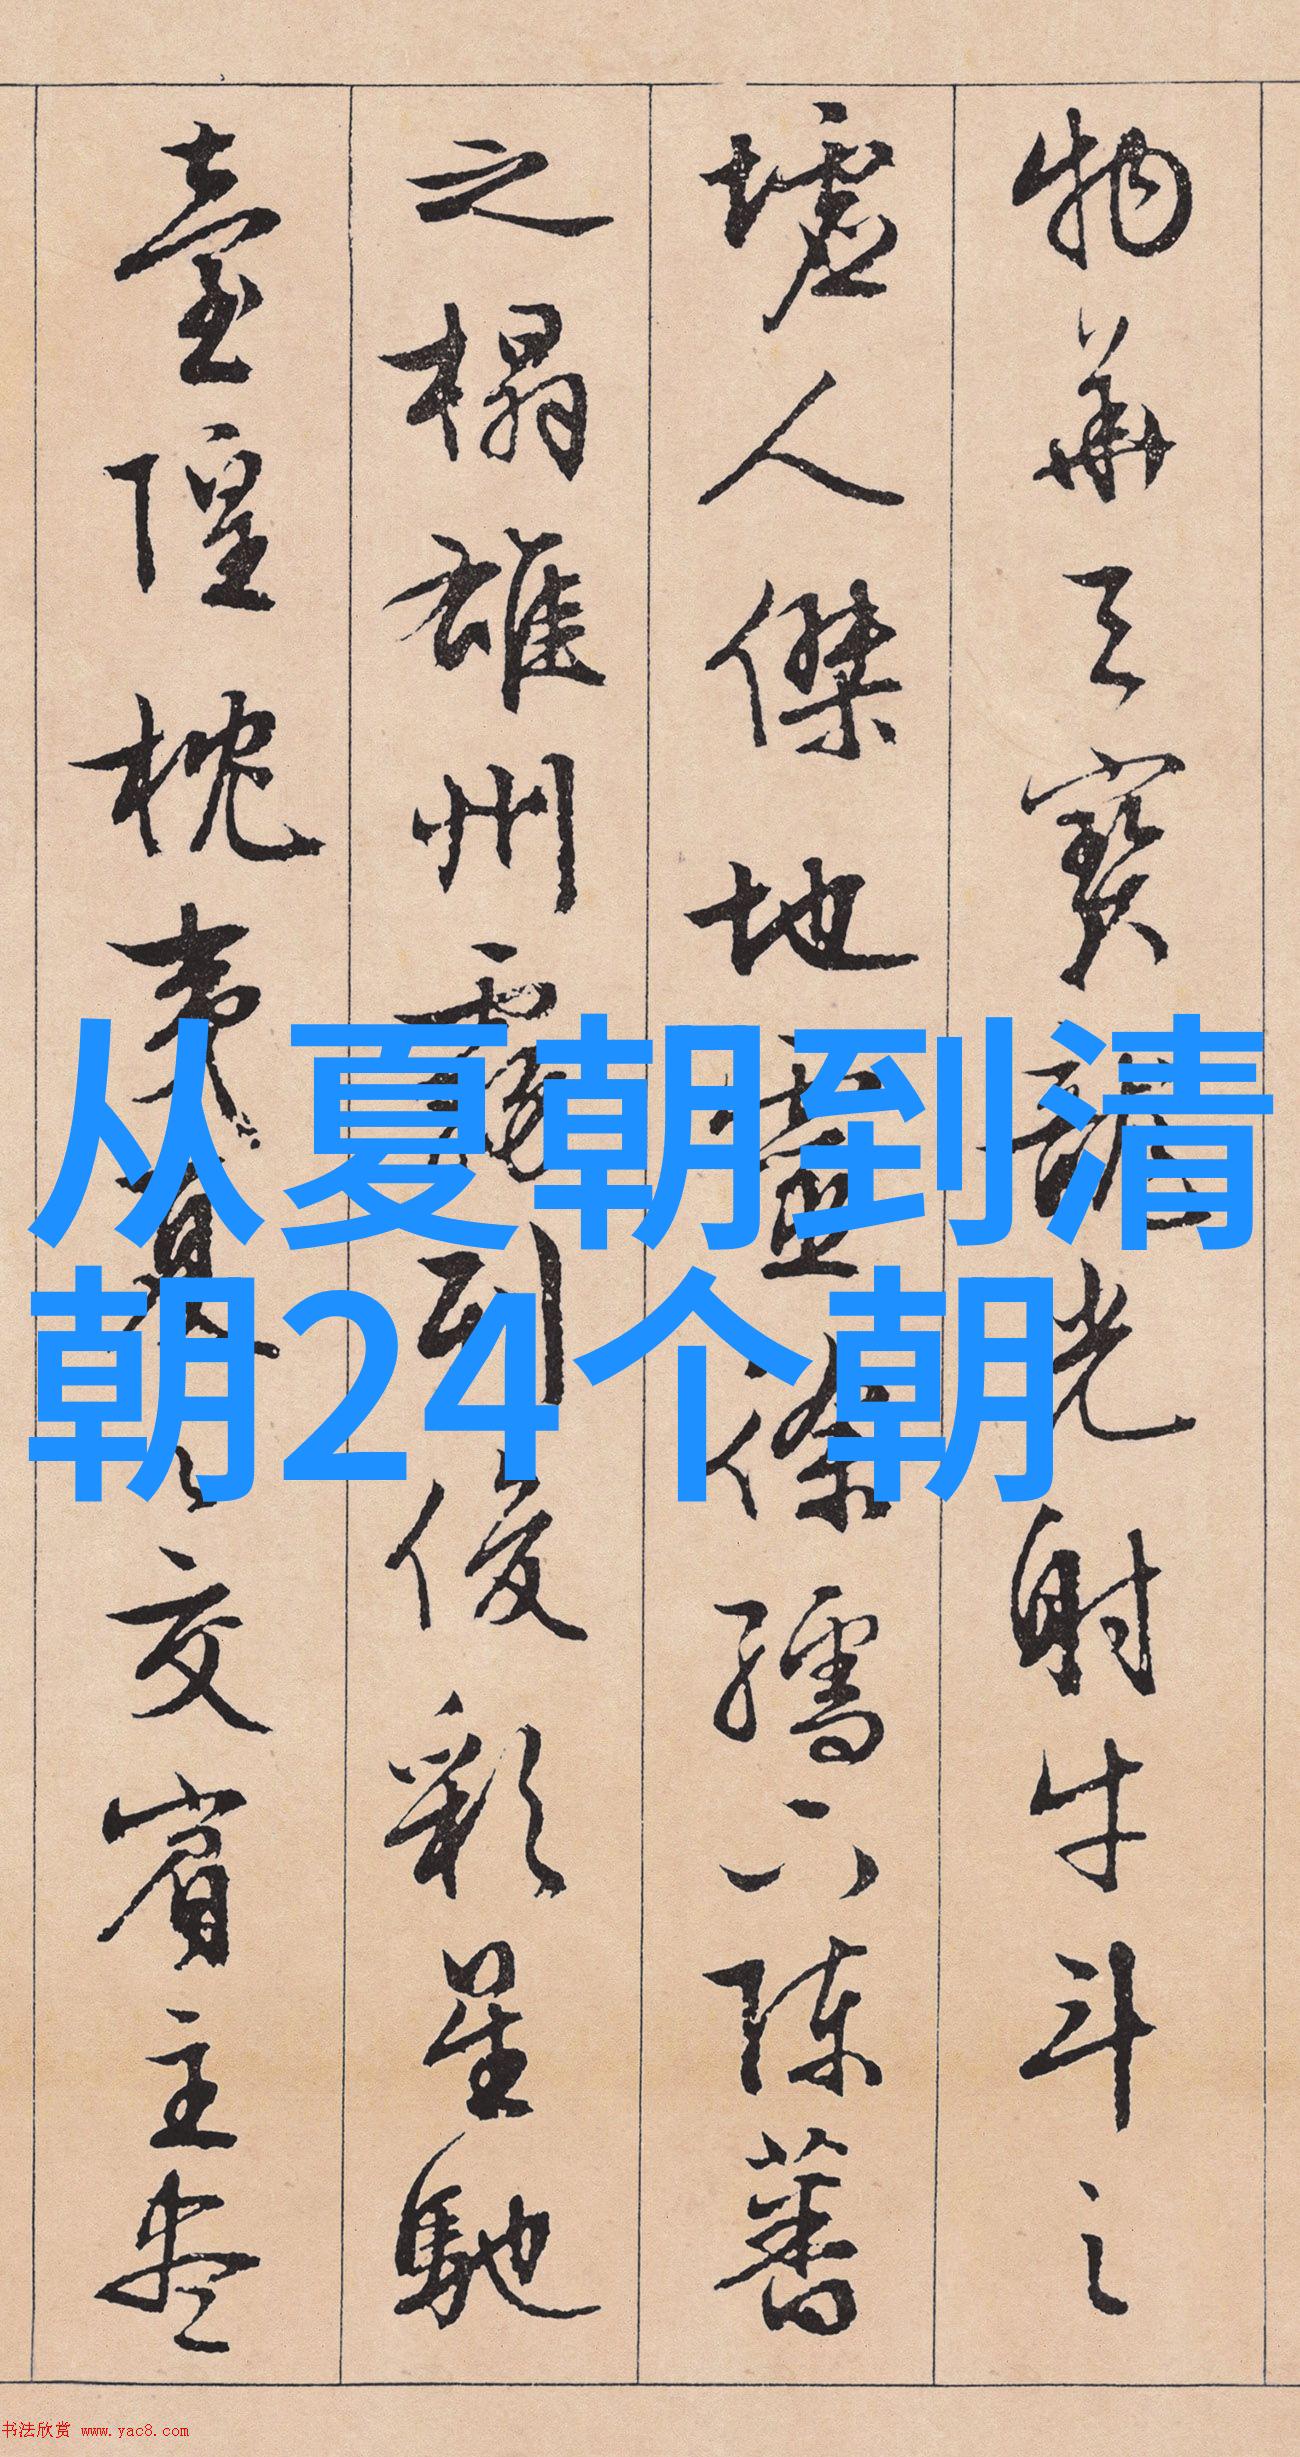 物華天寶龍光射牛斗之
墟人傑地靈徐孺下陳蕃
之榻雄州霧列俊彩星馳
臺隍枕夷夏之交賓主盡
从夏朝到清
朝24个朝
书法欣赏 www.yac8.com